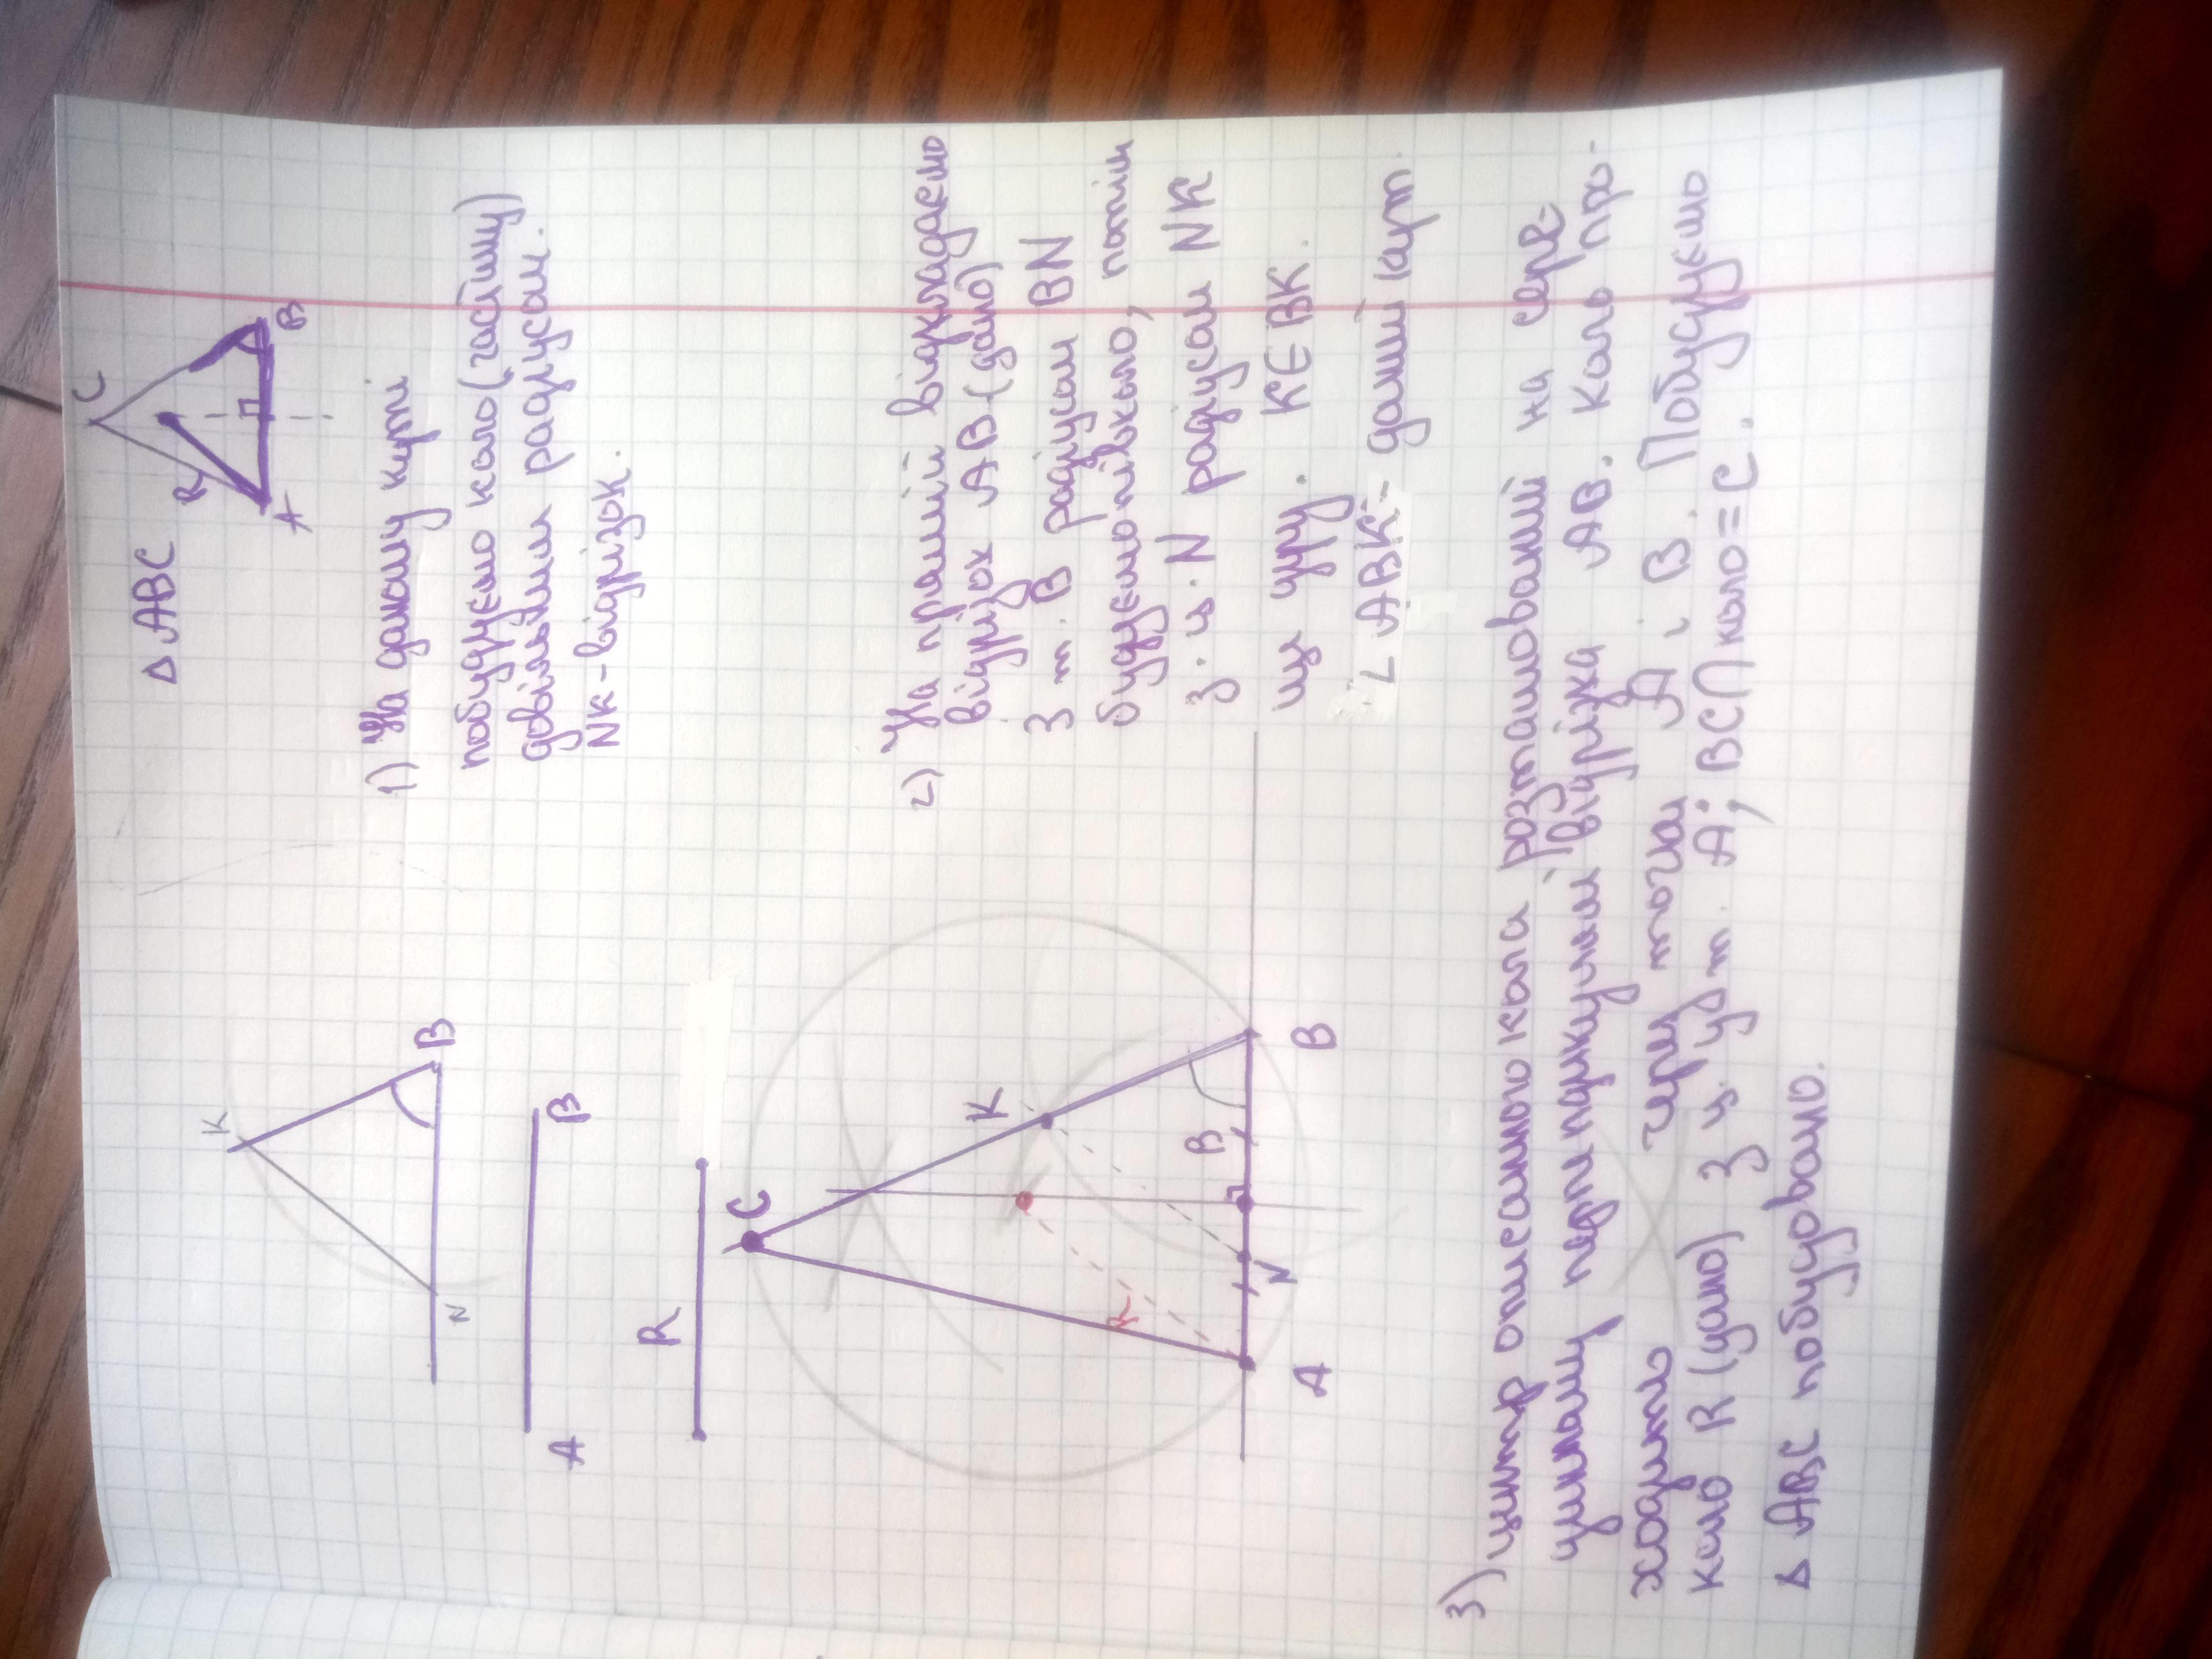 △ ABC
C
R
A
B
1) На даному куті
побудуємо коло (частину)
довільним радіусом.
NK-відрізок.
K
N
B
A
B
R
2) На прямій відкладаємо
відрізок AB (дано)
З т. B радіусом BN
будуємо півколо, потім
з ц. N радіусом NK
ще дугу. K∈BK.
∠ ABK- даний кут.
C
K
B
R
N
A
B
3) центр описаного кола розташований на сере-
динному перпендикулярі відрізка AB. Коло про-
ходить через точки A і B. Побудуємо
коло R (дано) з ц. у т. A; BC∩коло=C.
△ ABC побудовано.